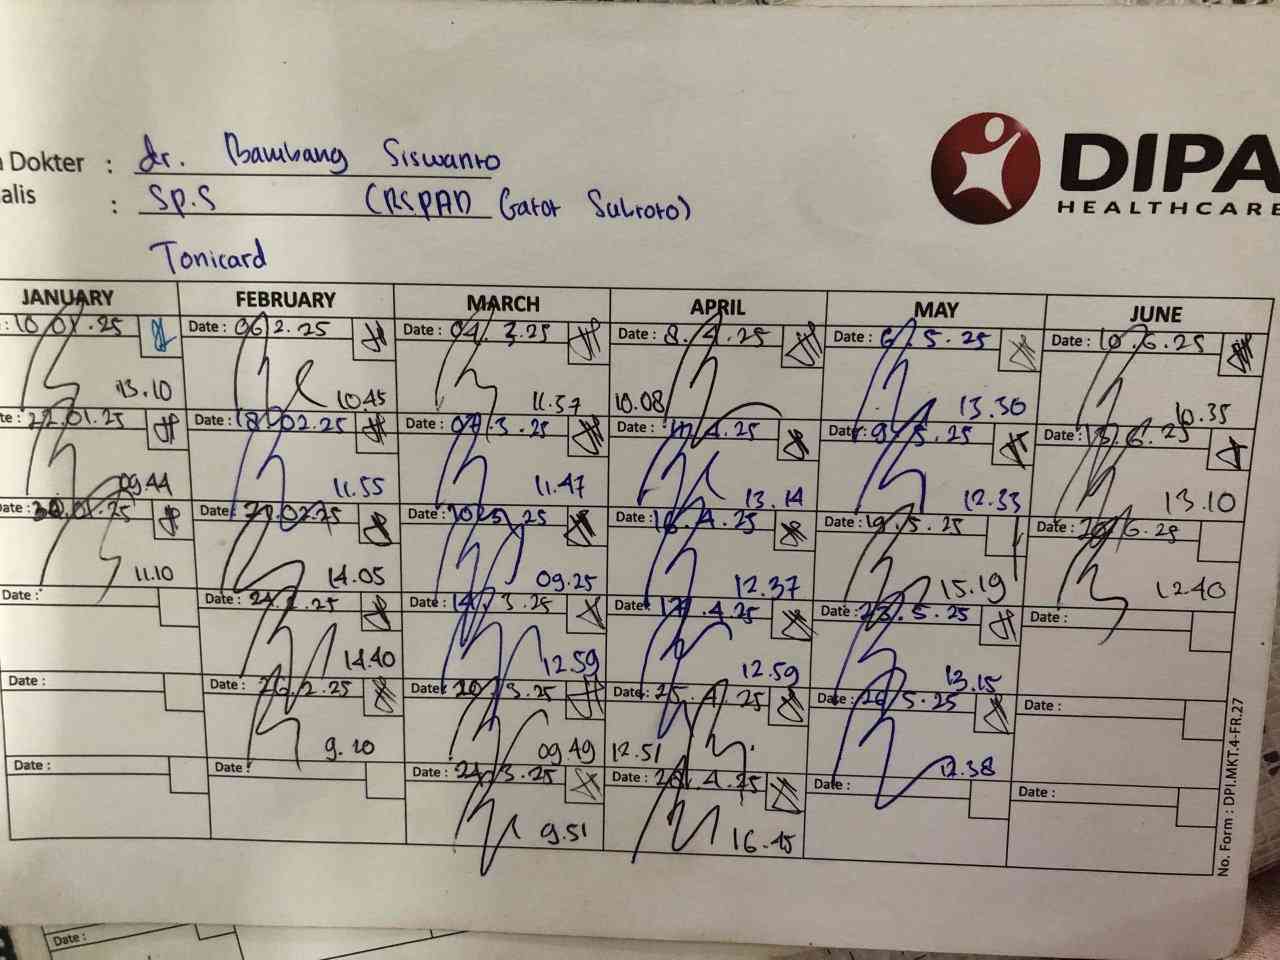 Dokter : dr. Bambang Siswanto
alis : Sp.S (RSPAD Gatot Subroto)
Tonicard
DIPA
HEALTHCARE
JANUARY FEBRUARY MARCH APRIL MAY JUNE
: 10.01.25 Date : 06.2.25 Date : 04.3.25 Date : 8.4.25 Date : 6.5.25 Date : 10.6.25
13.10 10.45 11.37 10.08 13.30 10.35
te : 22.01.25 Date : 18.02.25 Date : 07.3.25 Date : 4.25 Date : 9.5.25 Date : 13.6.25
09.44 11.55 11.47 13.14 12.33 13.10
Date : 01.25 Date : 21.02.25 Date : 10.3.25 Date : 16.4.25 Date : 19.5.25 Date : 6.25
11.10 14.05 09.25 12.37 15.19 12.40
Date : Date : 24.2.25 Date : 14.3.25 Date : 17.4.25 Date : 23.5.25 Date :
14.40 12.59 12.59 13.15
Date : Date : 26.2.25 Date : 20.3.25 Date : 25.4.25 Date : 26.5.25 Date :
9.20 09.49 12.51 12.38
Date : Date : Date : 24.3.25 Date : 4.25 Date : Date :
9.51 16.45
No. Form : DPI.MKT.4-FR.27
Date :
Date :